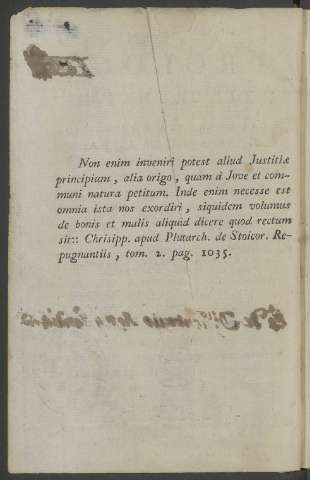 Non enim inveniri potest aliud Justitiæ
principium, alia origo, quam à Jove et com-
muni natura petitum. Inde enim necesse est
omnia ista nos exordiri, siquidem volumus
de bonis et malis aliquid dicere quod rectum
sit:: Chrisipp. apud Plutarch. de Stoicor. Re-
pugnantiis, tom. 2. pag. 1035.